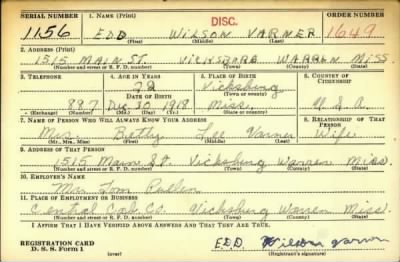 SERIAL NUMBER 1. NAME (Print) DISC. ORDER NUMBER
1156 EDD WILSON VARNER 1649
(First) (Middle) (Last)
2. ADDRESS (Print)
1515 MAIN ST. VICKSBURG WARREN MISS
(Number and street or R. F. D. number) (Town) (County) (State)
3. TELEPHONE 4. AGE IN YEARS 5. PLACE OF BIRTH 6. COUNTRY OF CITIZENSHIP
22 Vicksburg
DATE OF BIRTH (Town or county)
887 Dec. 30 1918 Miss. U.S.A
(Exchange) (Number) (Mo.) (Day) (Yr.) (State or country)
7. NAME OF PERSON WHO WILL ALWAYS KNOW YOUR ADDRESS 8. RELATIONSHIP OF THAT PERSON
Mrs. Betty Lee Varner Wife
(Mr., Mrs., Miss) (First) (Middle) (Last)
9. ADDRESS OF THAT PERSON
1515 Main St. Vicksburg Warren Miss.
(Number and street or R. F. D. number) (Town) (County) (State)
10. EMPLOYER'S NAME
Mr. Tom
11. PLACE OF EMPLOYMENT OR BUSINESS
Central Co. Vicksburg Warren Miss.
(Number and street or R. F. D. number) (Town) (County) (State)
I AFFIRM THAT I HAVE VERIFIED ABOVE ANSWERS AND THAT THEY ARE TRUE.
EDD Wilson Varner
REGISTRATION CARD
D. S. S. Form 1 (over) (Registrant's signature)